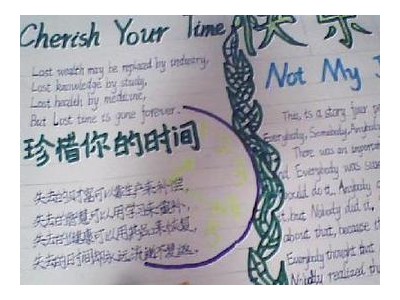 Cherish Your Time
Lost wealth may be replaced by industry,
Lost knowledge by study,
Lost health by medicine,
But Lost time is gone forever.
珍惜你的时间
失去的财富可以靠生产来补偿,
失去的智慧可以用学习来弥补,
失去的健康可以用其药来恢复,
失去的时间却永远流逝不复返。
快乐
Not My J
This is a story four pe
Everybody, Somebody, Anybody
There was an importan
and Everybody was sur
could do it, Anybody c
it, but Nobody did it.
about that, because it
Everybody thought that
Nobody realized tha